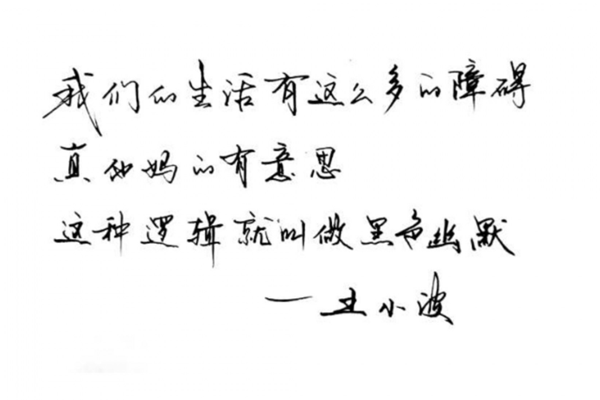 我们的生活有这么多的障碍
真他妈的有意思
这种逻辑就叫做黑色幽默
——王小波